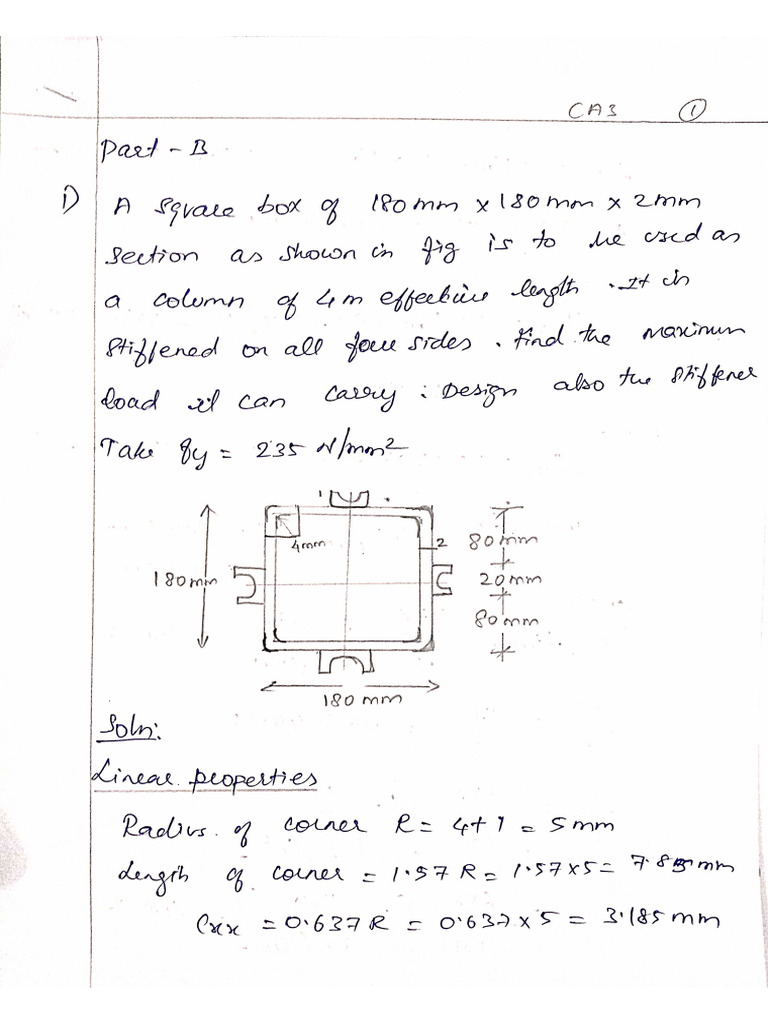 CA3 ①
Part - B
1) A square box of 180mm x 180mm x 2mm
section as shown in fig is to be used as
a column of 4m effective length. It is
stiffened on all four sides. Find the maximum
load it can carry. Design also the stiffener
Take fy = 235 N/mm²
4mm 2 80mm
180mm 20mm
80mm
180 mm
Soln:
Linear properties
Radius of corner R = 4+1 = 5mm
Length of corner = 1.57 R = 1.57x5 = 7.85mm
Cxx = 0.637R = 0.637x5 = 3.185mm